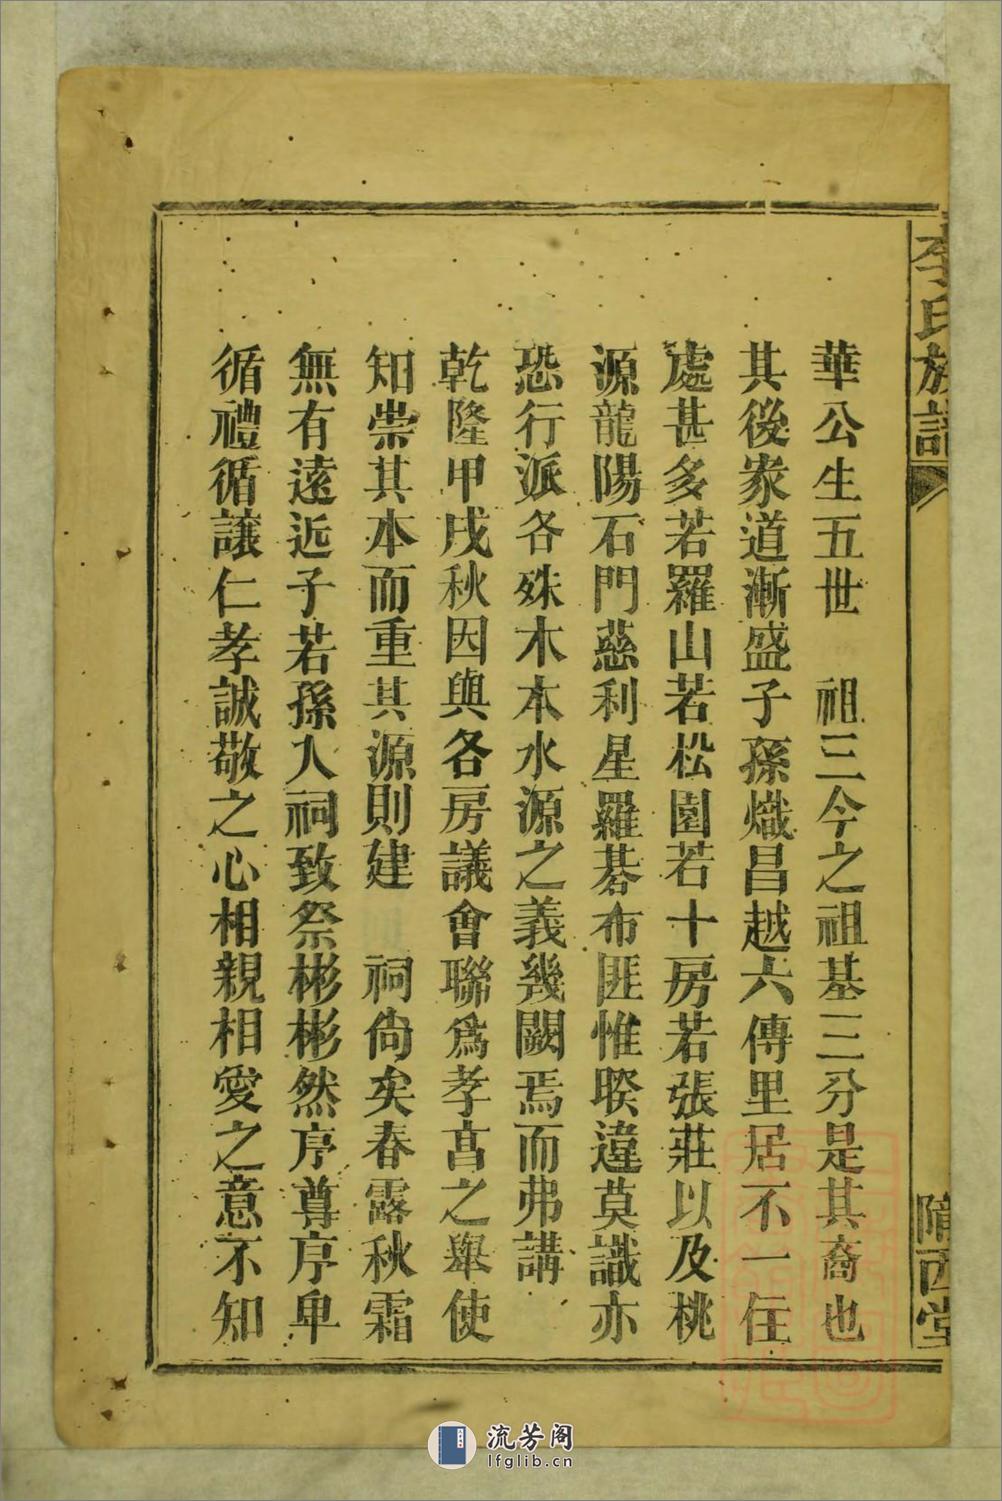 華公生五世　祖三今之祖基三分是其裔也
其後家道漸盛子孫熾昌越六傳里居不一住
處甚多若羅山若松園若十房若張莊以及桃
源龍陽石門慈利星羅碁布匪惟暌違莫識亦
恐行派各殊木本水源之義幾闕焉而弗講
乾隆甲戌秋因與各房議會聯為孝享之舉使
知崇其本而重其源則建　祠尚矣春露秋霜
無有遠近子若孫入祠致祭彬彬然序尊序卑
循禮循讓仁孝誠敬之心相親相愛之意不知
李氏族譜
隴西堂
流芳阁
lfglib.cn